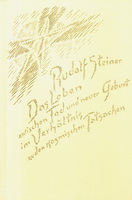 Rudolf Steiner
Das Leben
zwischen Tod und neuer Geburt
im Verhältnis
zu den kosmischen Tatsachen